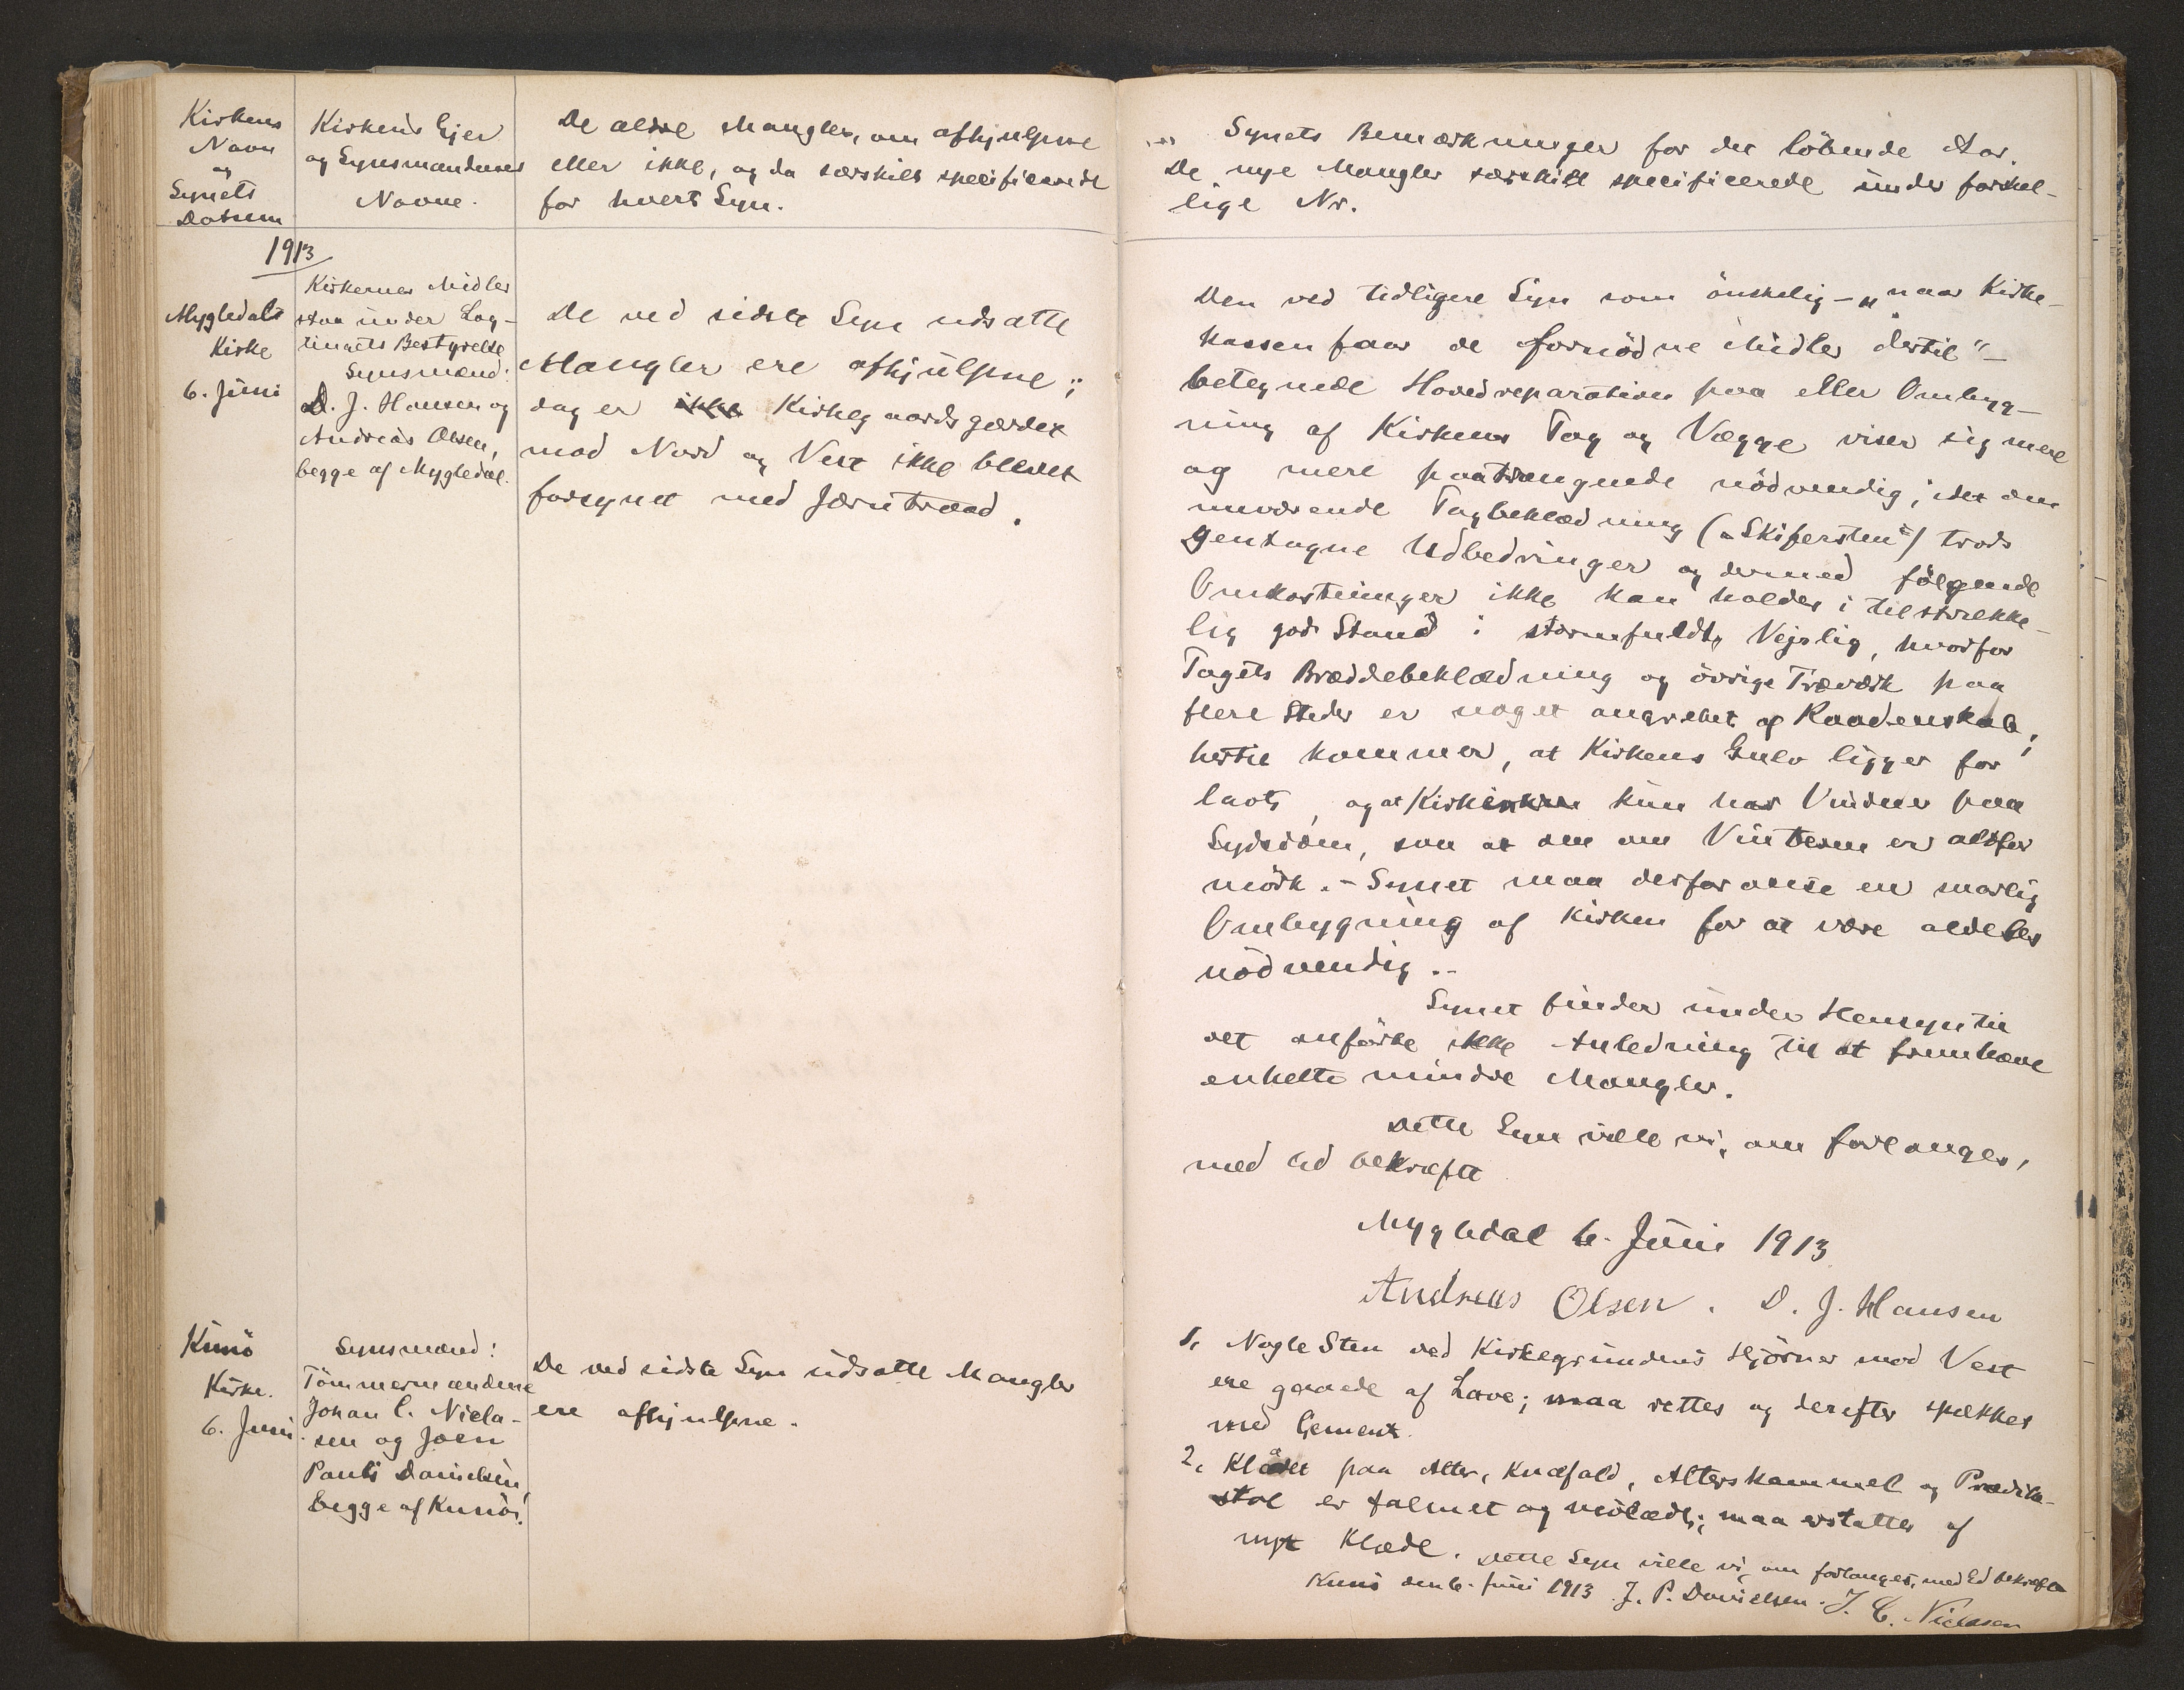 Kirkens
Navn
og
Synets
Datum
Kirkens Ejer
og Synsmændenes
Navne.
De ældre Mangler, om afhjulpne
eller ikke, og da særskilt specificerede
for hvert Syn.
1913
Mygledals
Kirke
6. Juni
Kirkernes Midler
staa under Lag-
tingets Bestyrelse
Synsmænd:
D. J. Hansen og
Andreas Olsen,
begge af Mygledal.
De ved sidste Syn udsatte
Mangler ere afhjulpne;
dog er ikke Kirkegaardsgærdet
mod Nord og Vest ikke blevet
forsynet med Jærntraad.
Kunö
Kirke.
6. Juni
Synsmænd:
Tömmermændene
Johan C. Niela-
sen og Joen
Pauli Danielsen,
begge af Kunö.
De ved sidste Syn udsatte Mangler
ere afhjulpne.
Synets Bemærkninger for det löbende Aar.
De nye Mangler særskilt specificerede under forskel-
lige Nr.
Den ved tidligere Syn som önskelig - "naar Kirke-
kassen faar de fornödne Midler dertil" -
betegnede Hovedreparation paa eller Ombyg-
ning af Kirkens Tag og Vægge viser sig mere
og mere paatrængende nödvendig; idet den
nuværende Tagbeklædning ("Skifersten") trods
gentagne Udbedringer og dermed fölgende
Omkostninger ikke kan holdes i tilstrække-
lig god Stand i stormfuldt Vejrlig, hvorfor
Tagets Bræddebeklædning og övrige Træværk paa
flere Steder er noget angrebet af Raaddenskab;
hertil kommer, at Kirkens Gulv ligger for
lavt, og at Kirken kun har Vinduer paa
Sydsiden, saa at den om Vinteren er altfor
mörk. - Synet maa derfor anse en snarlig
Ombygning af Kirken for at være aldeles
nödvendig. -
Synet finder under Hensyn til
det anförte ikke Anledning til at fremhæve
enkelte mindre Mangler.
Dette Syn ville vi, om forlanges,
med Ed bekræfte
Mygledal 6. Juni 1913
Andreas Olsen. D. J. Hansen
1, Nogle Sten ved Kirkegrundens Hjörner mod Vest
ere gaaede af Lave; maa rettes og derefter spækkes
med Cement.
2, Klædet paa Alter, Knæfald, Alterskammel og Prædike-
stol er falmet og mölædt; maa erstattes af
nyt Klæde. Dette Syn ville vi, om forlanges, med Ed bekræfte
Kunö den 6. Juni 1913 J. P. Danielsen. J. C. Nielasen